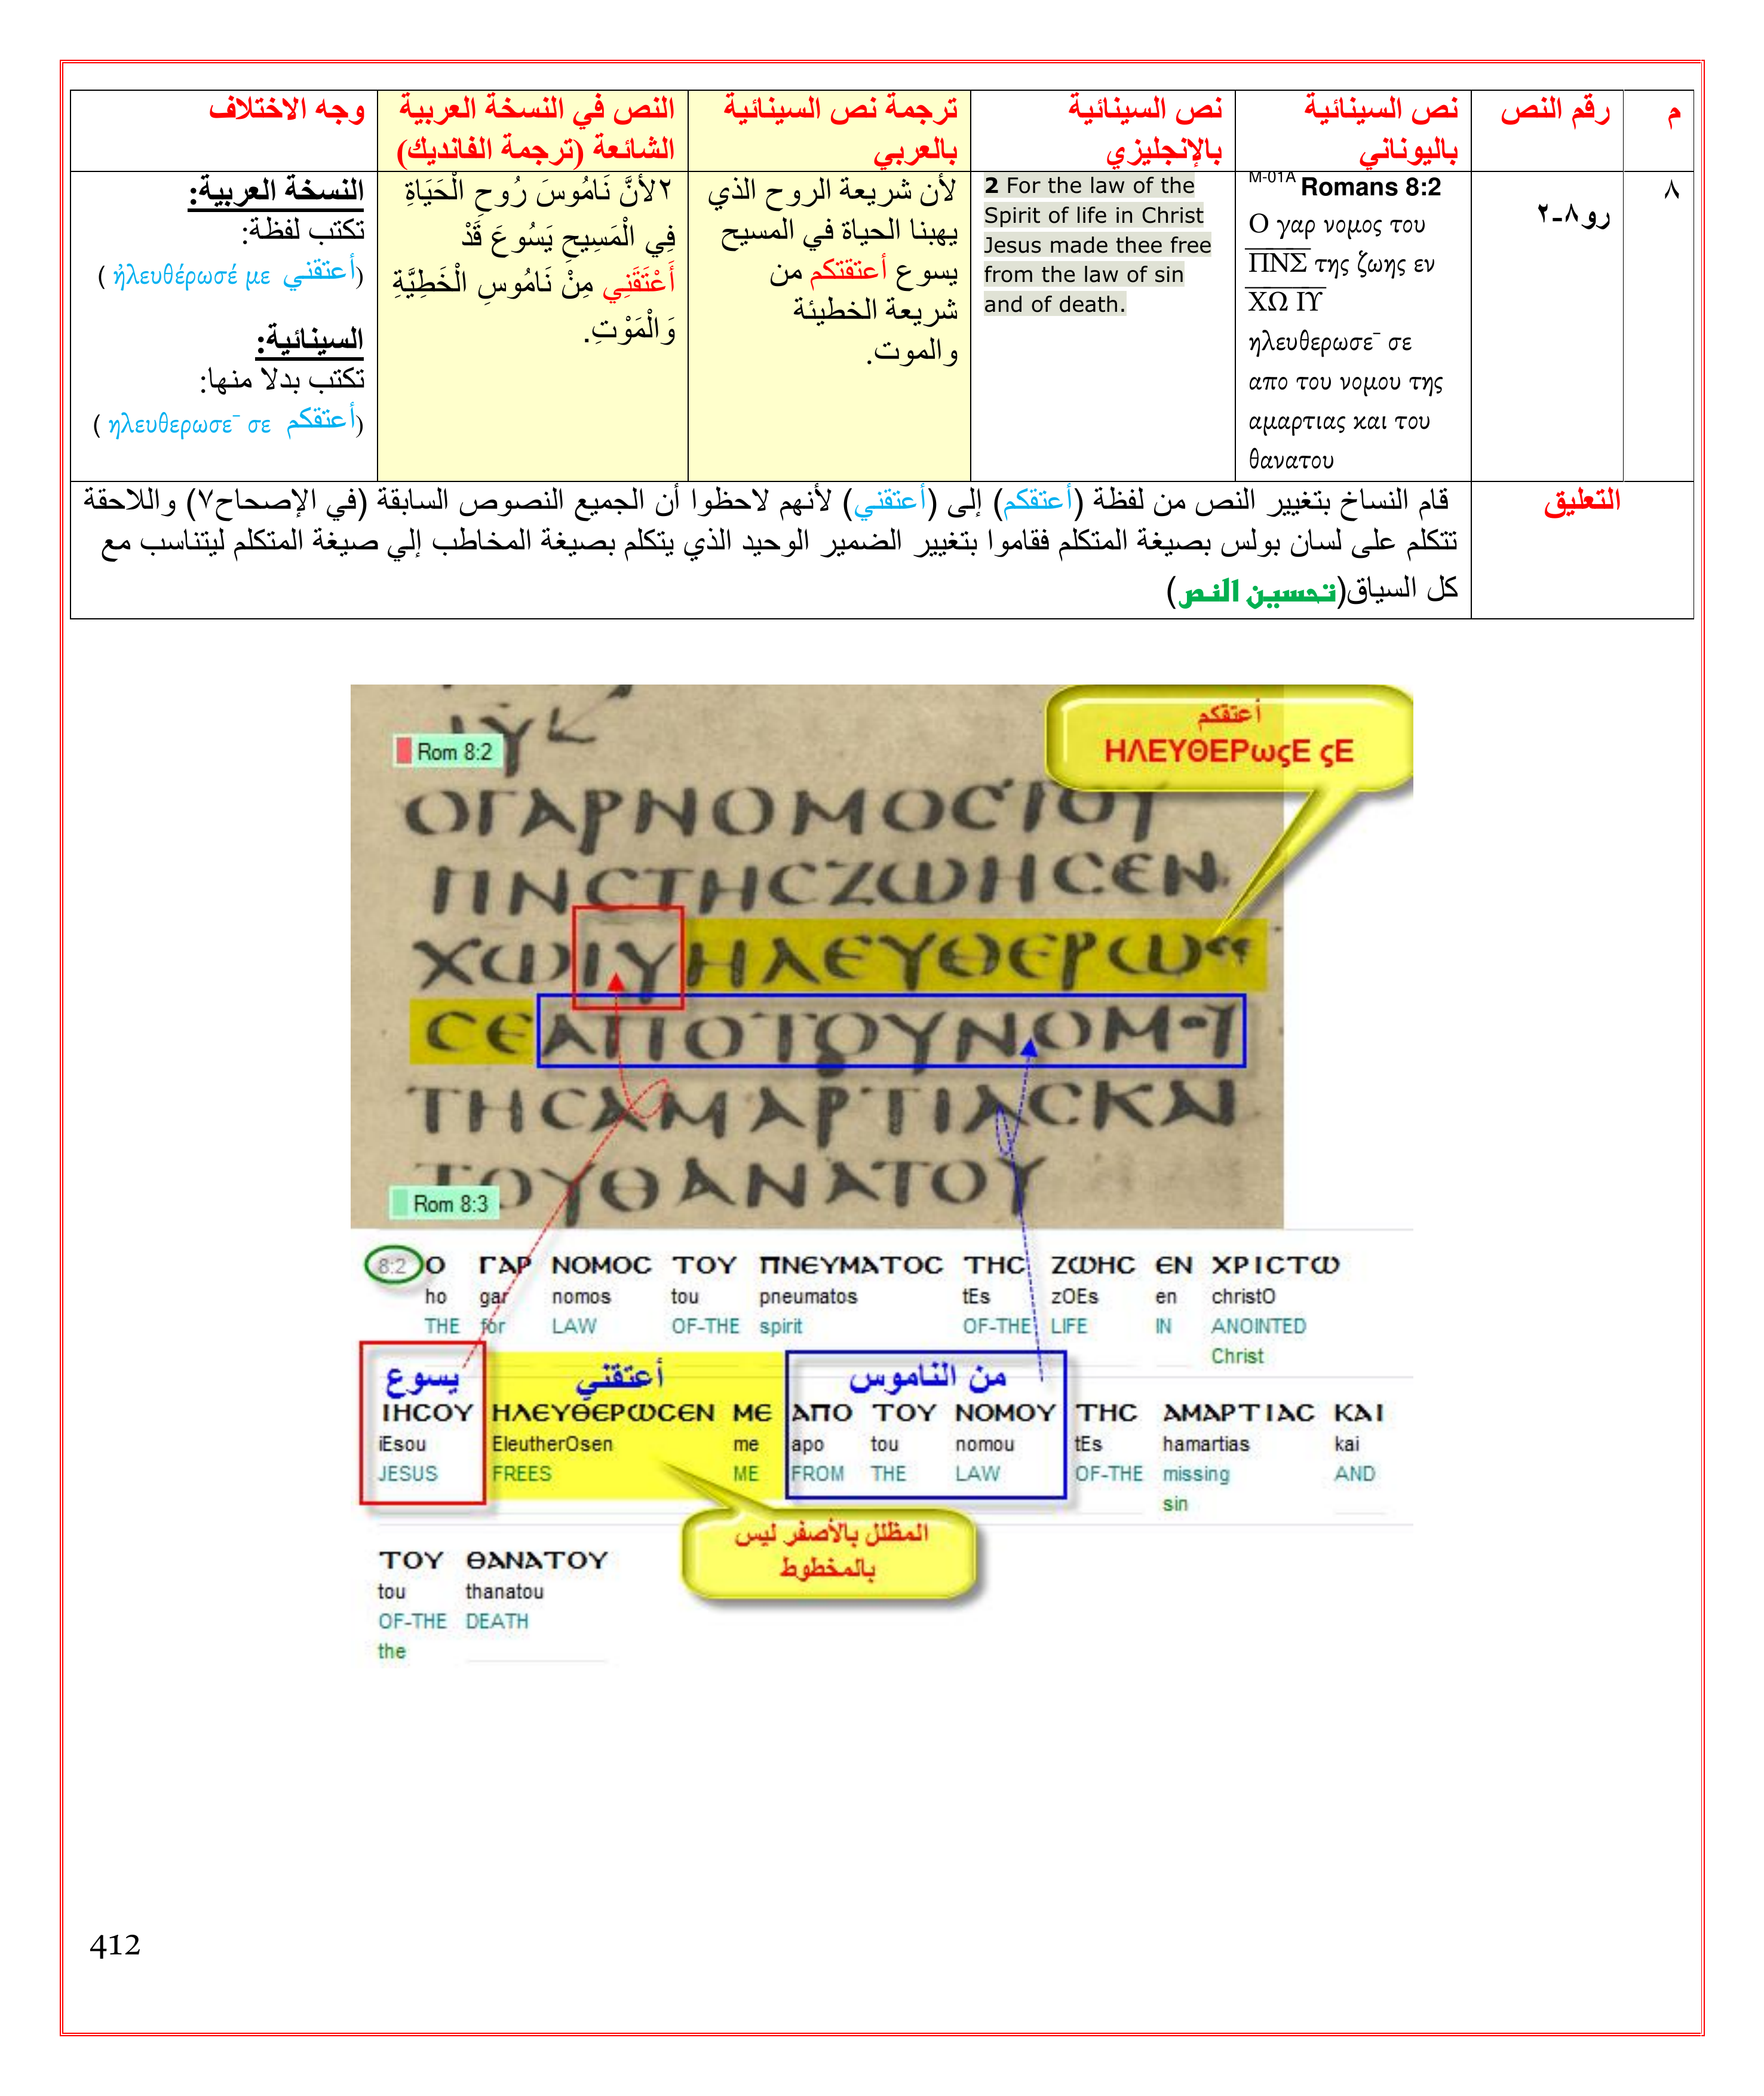 م
رقم النص
نص السينائية
باليوناني
نص السينائية
بالإنجليزي
ترجمة نص السينائية
بالعربي
النص في النسخة العربية
الشائعة (ترجمة الفانديك)
وجه الاختلاف
٨
رو٨-٢
M-01A Romans 8:2
Ο γαρ νομος του
Π͞Ν͞Σ της ζωης εν
Χ͞Ω Ι͞Υ
ηλευθερωσε¯ σε
απο του νομου της
αμαρτιας και του
θανατου
2 For the law of the
Spirit of life in Christ
Jesus made thee free
from the law of sin
and of death.
لأن شريعة الروح الذي
يهبنا الحياة في المسيح
يسوع أعتقتكم من
شريعة الخطيئة
والموت.
٢لأنَّ نَامُوسَ رُوحِ الْحَيَاةِ
فِي الْمَسِيحِ يَسُوعَ قَدْ
أَعْتَقَنِي مِنْ نَامُوسِ الْخَطِيَّةِ
وَالْمَوْتِ.
النسخة العربية:
تكتب لفظة:
(أعتقني ἠλευθέρωσέ με )
السينائية:
تكتب بدلا منها:
(أعتقكم ηλευθερωσε¯ σε )
التعليق
قام النساخ بتغيير النص من لفظة (أعتقكم) إلى (أعتقني) لأنهم لاحظوا أن الجميع النصوص السابقة (في الإصحاح٧) واللاحقة
تتكلم على لسان بولس بصيغة المتكلم فقاموا بتغيير الضمير الوحيد الذي يتكلم بصيغة المخاطب إلي صيغة المتكلم ليتناسب مع
كل السياق(تحسين النص)
أعتقكم
ΗΛΕΥΘΕΡωςΕ ςΕ
ΙΥ
Rom 8:2
ΟΓΑΡΝΟΜΟϹΤΟΥ
ΠΝϹΤΗϹΖΩΗϹΕΝ
ΧΩΙΥΗΛΕΥΘΕΡΩϹΕ
ϹΕΑΠΟΤΟΥΝΟΜΟΥ
ΤΗϹΑΜΑΡΤΙΑϹΚΑΙ
ΤΟΥΘΑΝΑΤΟΥ
Rom 8:3
8:2 Ο ΓΑΡ ΝΟΜΟϹ ΤΟΥ ΠΝΕΥΜΑΤΟϹ ΤΗϹ ΖΩΗϹ ΕΝ ΧΡΙϹΤΩ
ho gar nomos tou pneumatos tEs zOEs en christO
THE for LAW OF-THE spirit OF-THE LIFE IN ANOINTED
Christ
يسوع أعتقني من الناموس
ΙΗϹΟΥ ΗΛΕΥΘΕΡΩϹΕΝ ΜΕ ΑΠΟ ΤΟΥ ΝΟΜΟΥ ΤΗϹ ΑΜΑΡΤΙΑϹ ΚΑΙ
iEsou EleutherOsen me apo tou nomou tEs hamartias kai
JESUS FREES ME FROM THE LAW OF-THE missing AND
sin
المظلل بالأصفر ليس
بالمخطوط
ΤΟΥ ΘΑΝΑΤΟΥ
tou thanatou
OF-THE DEATH
the
412